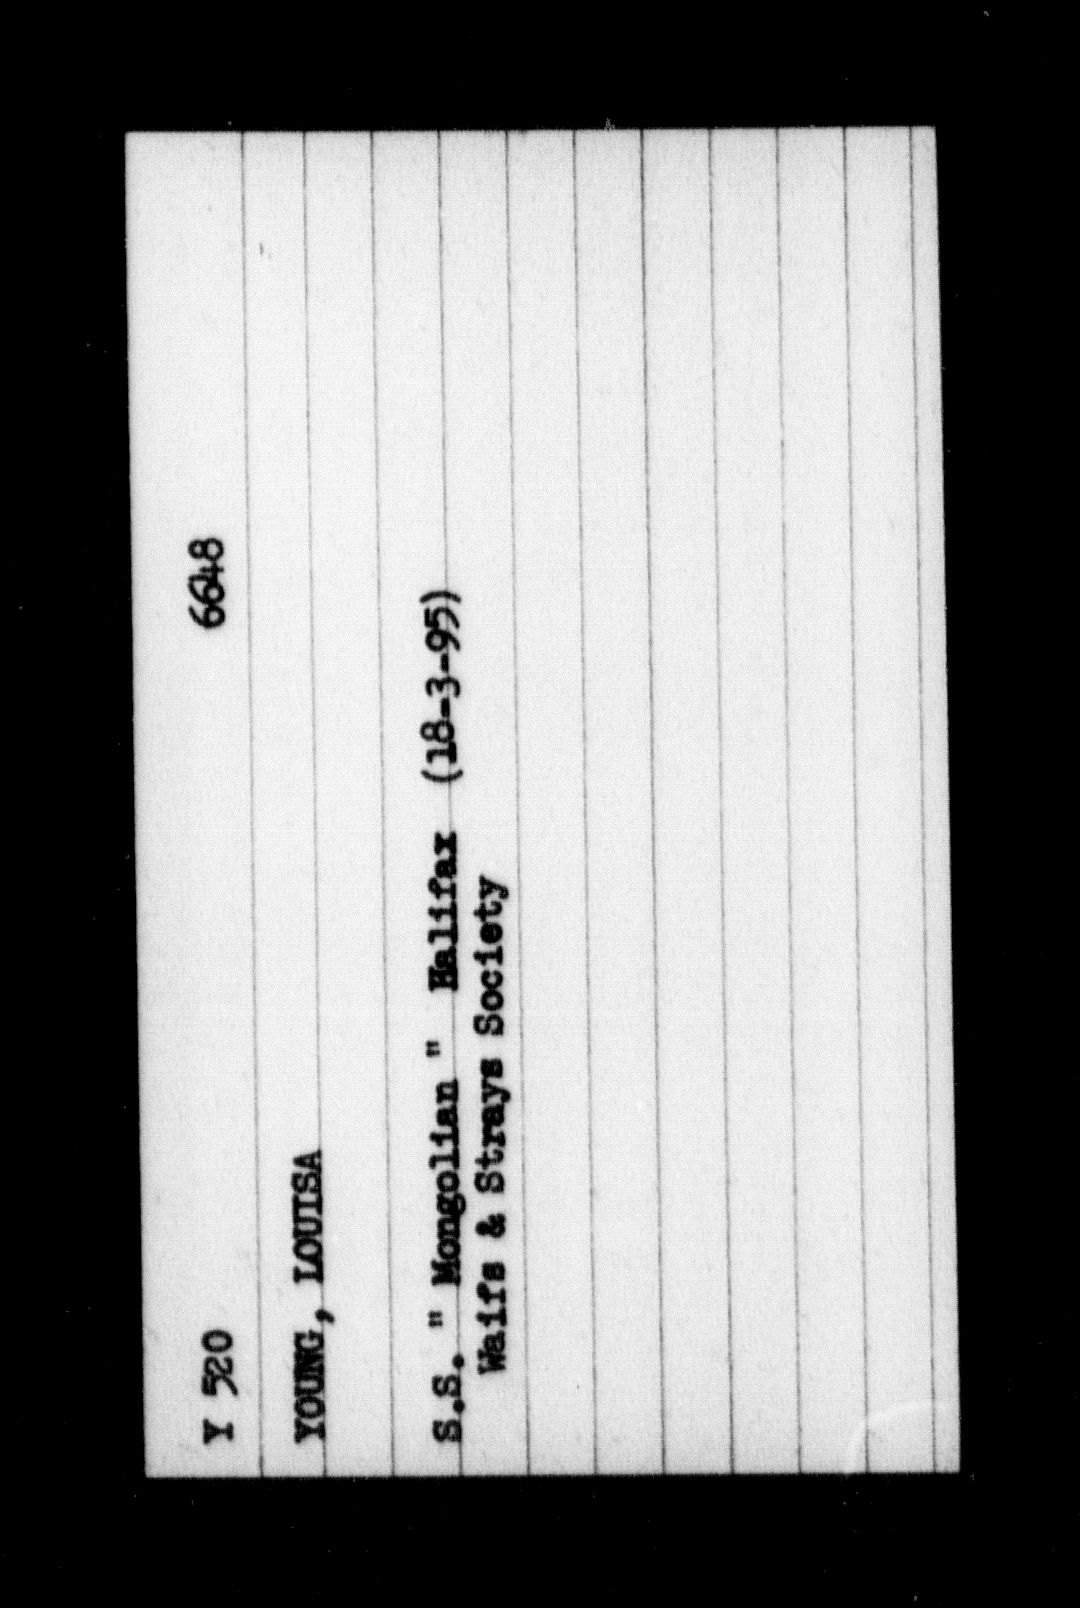 Y 520 6648
YOUNG, LOUISA
S.S. " Mongolian " Halifax (18-3-95)
Waifs & Strays Society